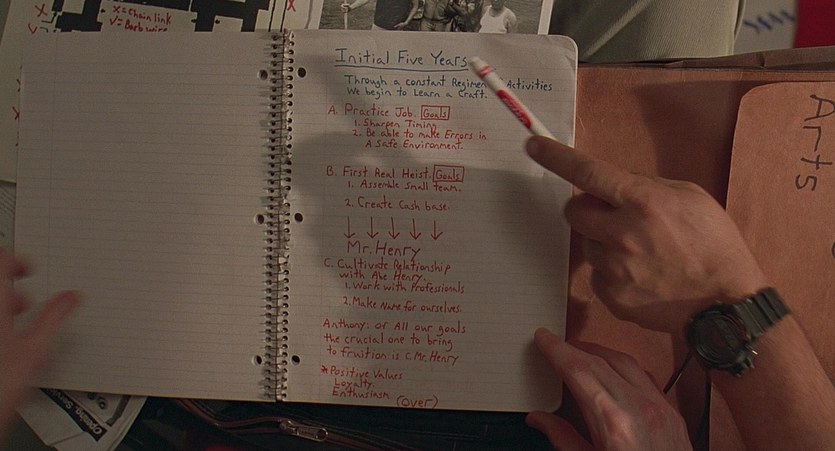 x = chain link
v = Barb wire
Initial Five Years
Through a constant Regimen Activities
We begin to Learn a Craft.
A. Practice Job. Goals
1. Sharpen Timing
2. Be able to make Errors in
A Safe Environment.
B. First Real Heist. Goals
1. Assemble Small team.
2. Create Cash base.
Mr. Henry
C. Cultivate Relationship
with Abe Henry.
1. Work with Professionals
2. Make Name for ourselves.
Anthony: of All our goals
the crucial one to bring
to fruition is C. Mr. Henry
* Positive Values
Loyalty.
Enthusiasm (over)
Arts